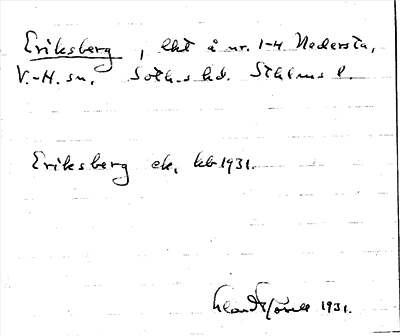 Eriksberg, lht å nr. 1-4 Nedersta,
V.-H. sn. Soth.s hd. Sthlms l.
Eriksberg ek, kb 1931.
1931.